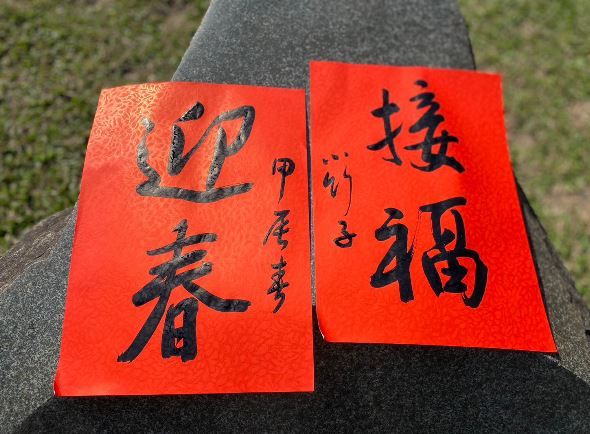 迎春
甲辰春
接福